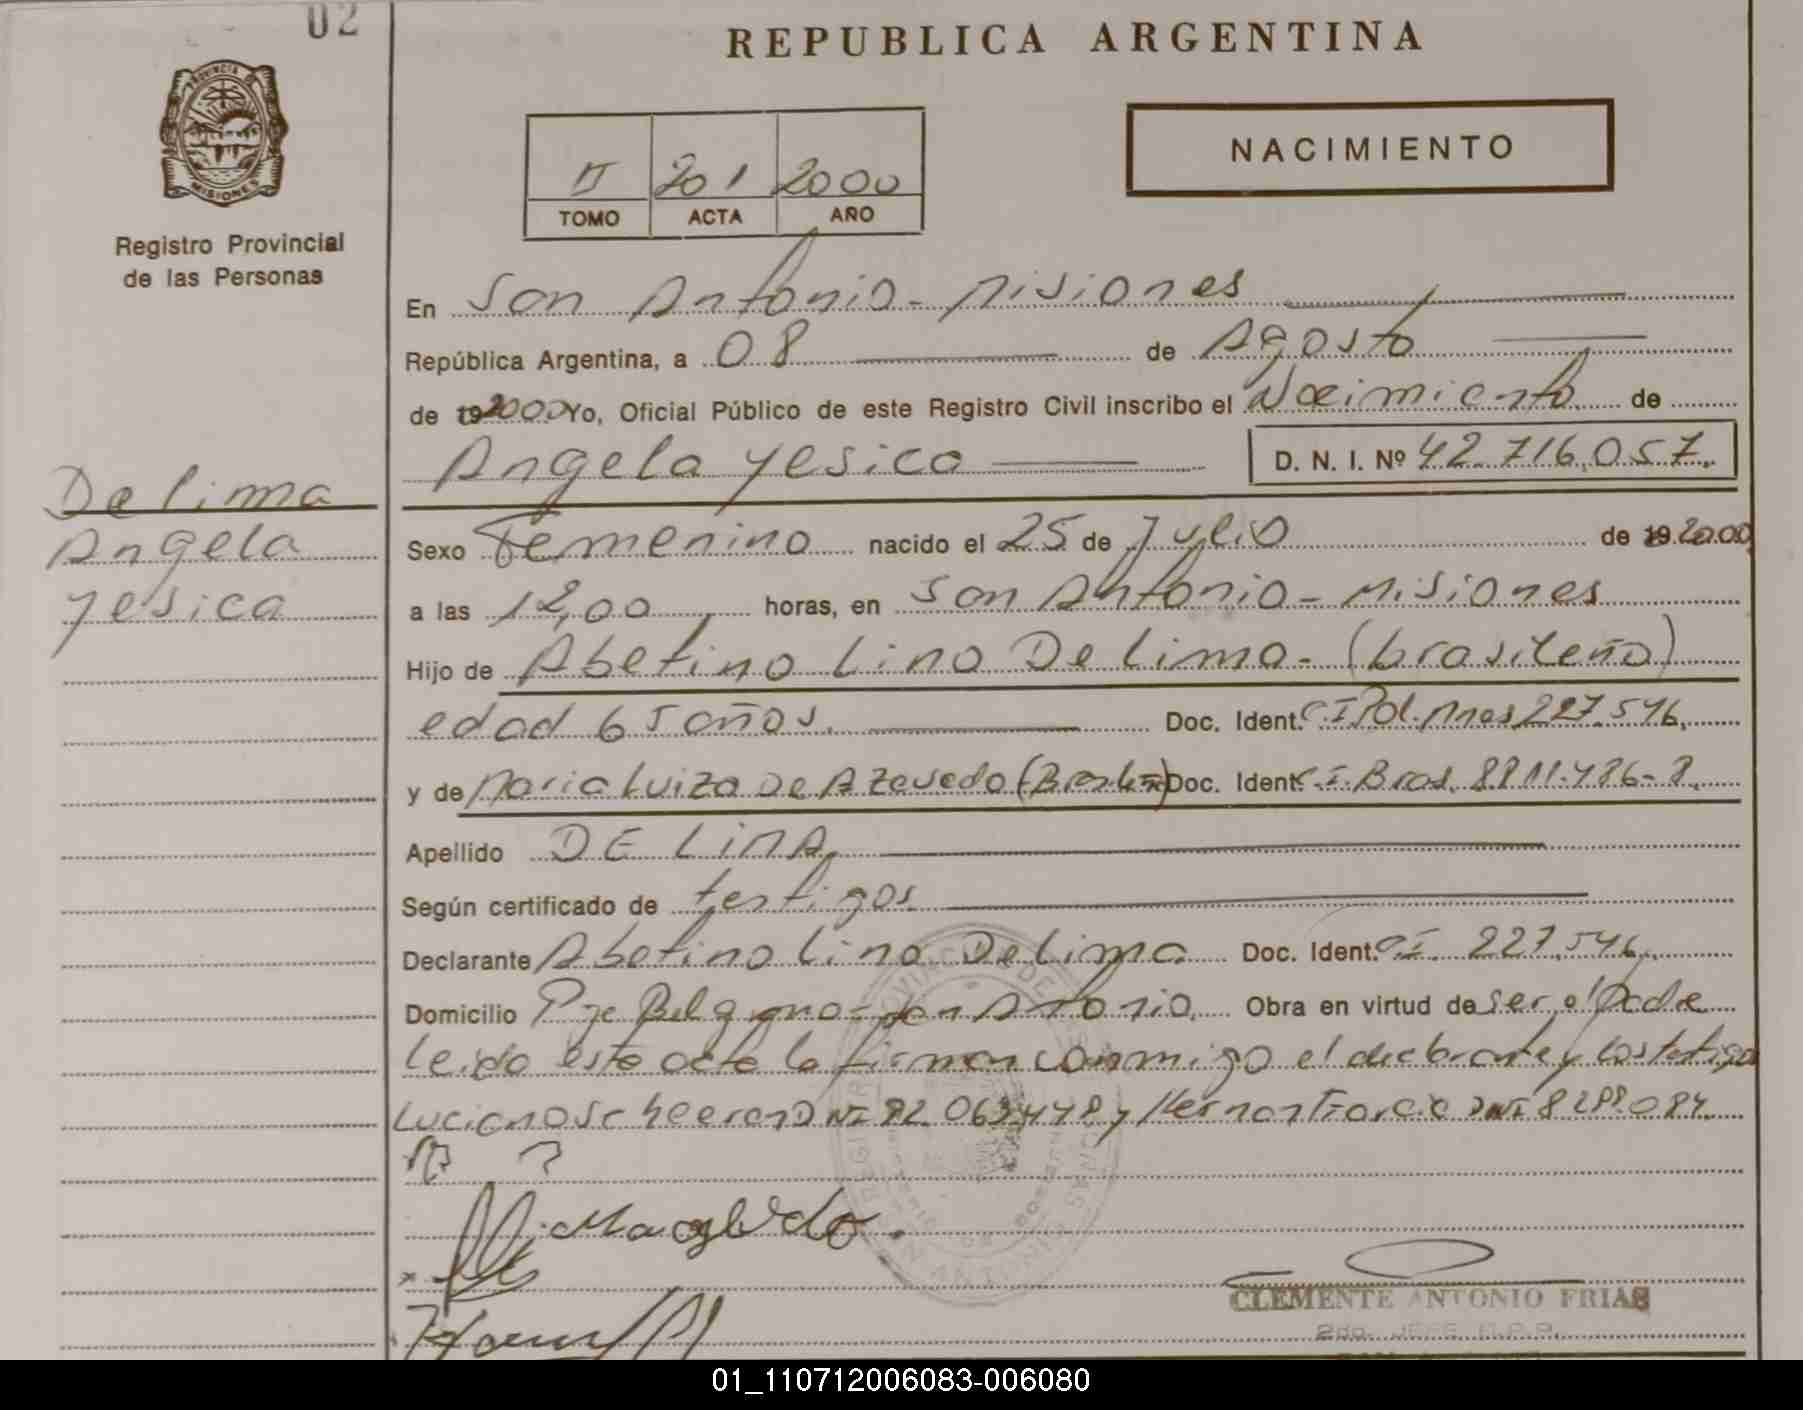 02
REPUBLICA ARGENTINA
PROVINCIA DE
MISIONES
Registro Provincial
de las Personas
NACIMIENTO
II 201 2000
TOMO ACTA AÑO
En San Antonio - Misiones
República Argentina, a 08 de Agosto
de 192000 Yo, Oficial Público de este Registro Civil inscribo el Nacimiento de
Angela Yesica D. N. I. Nº 42.716.057.
De lima
Angela
Yesica
Sexo Femenino nacido el 25 de Julio de 19 2000
a las 12,00 horas, en San Antonio - Misiones
Hijo de Abetino Lino De lima - (brasileño)
edad 65 años. Doc. Ident. C.I Pol. Mnes 227.546.
y de Maria Luiza De Azevedo Doc. Ident. C.I. Bras. 8811.786-8.
Apellido DE LIMA
Según certificado de testigos
Declarante Abetino Lino De lima Doc. Ident. CI. 227.546.
Domicilio Pje Belgrano - San Antonio. Obra en virtud de ser el Padre
Leida este acta la firman conmigo el declarante y los testigos
Luciano DNI 92.063.448 y Hernan DNI 8288.084.
CLEMENTE ANTONIO FRIAS
2do. JEFE R.P.P.
01_110712006083-006080